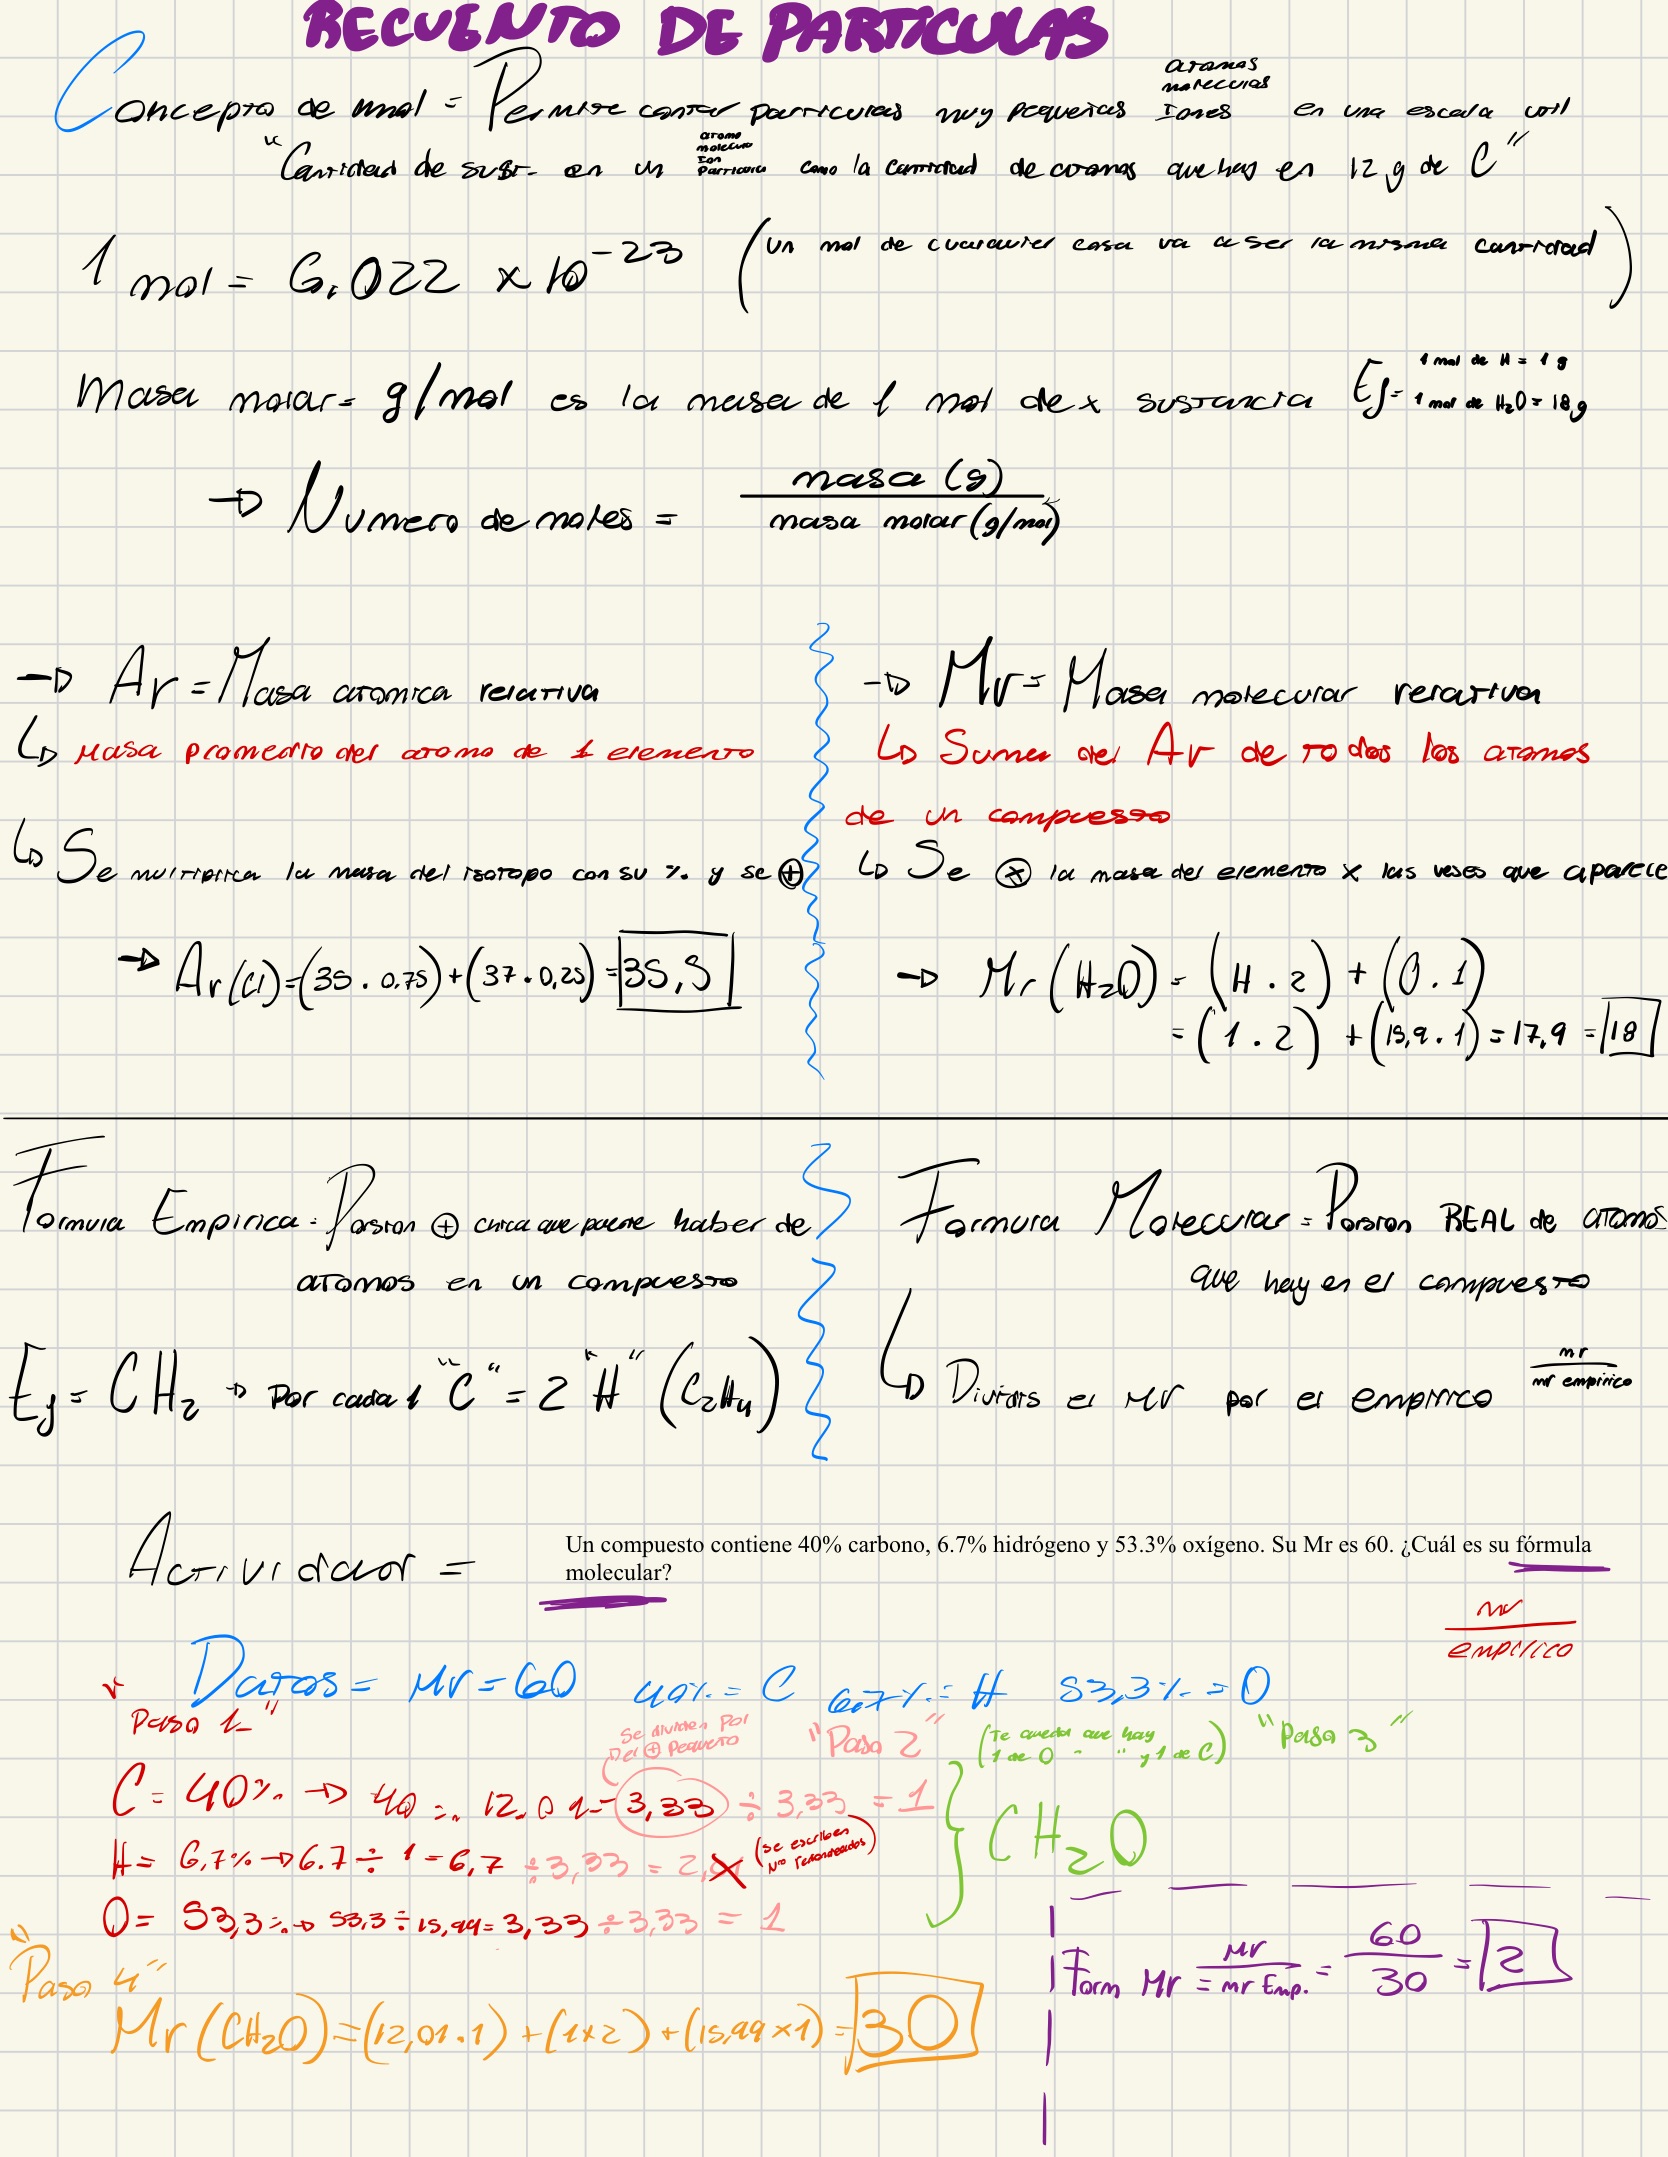 RECUENTO DE PARTICULAS
Concepto de mol = Permite contar particulas muy pequeñas atomos moleculas Iones en una escala util
"Cantidad de sust. en un atomo molecula Ion Particula como la cantidad de atomos que hay en 12 g de C"
1 mol = 6.022 x 10⁻²³ (un mol de cualquier cosa va a ser la misma cantidad)
Masa molar = g/mol es la masa de 1 mol de x sustancia Ej = 1 mol de H = 1 g
1 mol de H₂O = 18 g
→ Numero de moles = masa (g) / masa molar (g/mol)
→ Ar = Masa atomica relativa
↳ Masa promedio del atomo de 1 elemento
↳ Se multiplica la masa del isotopo con su % y se ⊕
→ Ar (Cl) = (35 . 0,75) + (37 . 0,25) = 35,5
→ Mr = Masa molecular relativa
↳ Suma del Ar de todos los atomos
de un compuesto
↳ Se ⊗ la masa del elemento x las veses que aparece
→ Mr (H₂O) = (H . 2) + (O . 1)
= (1 . 2) + (15,9 . 1) = 17,9 = 18
Formula Empirica = Porsion ⊕ chica que puede haber de
atomos en un compuesto
Ej = CH₂ → Por cada 1 "C" = 2 "H" (C₂H₄)
Formula Molecular = Porsion REAL de atomos
que hay en el compuesto
↳ Dividis el Mr por el empirico mr / mr empirico
Actividad =
Un compuesto contiene 40% carbono, 6.7% hidrógeno y 53.3% oxígeno. Su Mr es 60. ¿Cuál es su fórmula
molecular?
mr / empirico
Datos = Mr = 60 40% = C 6.7% = H 53,3% = O
"Paso 1"
Se dividen Por
Del ⊕ Pequeño
"Paso 2"
(Te queda que hay
1 de O " " y 1 de C)
"Paso 3"
C = 40% → 40 ÷ 12.01 = 3,33 ÷ 3,33 = 1
H = 6,7% → 6.7 ÷ 1 = 6,7 ÷ 3,33 = 2, (se escriben Nro redondeados)
O = 53,3% → 53,3 ÷ 15,99 = 3,33 ÷ 3,33 = 1
CH₂O
"Paso 4"
Mr (CH₂O) = (12,01 . 1) + (1 x 2) + (15,99 x 1) = 30
Form Mr = Mr / mr Emp. = 60 / 30 = 2